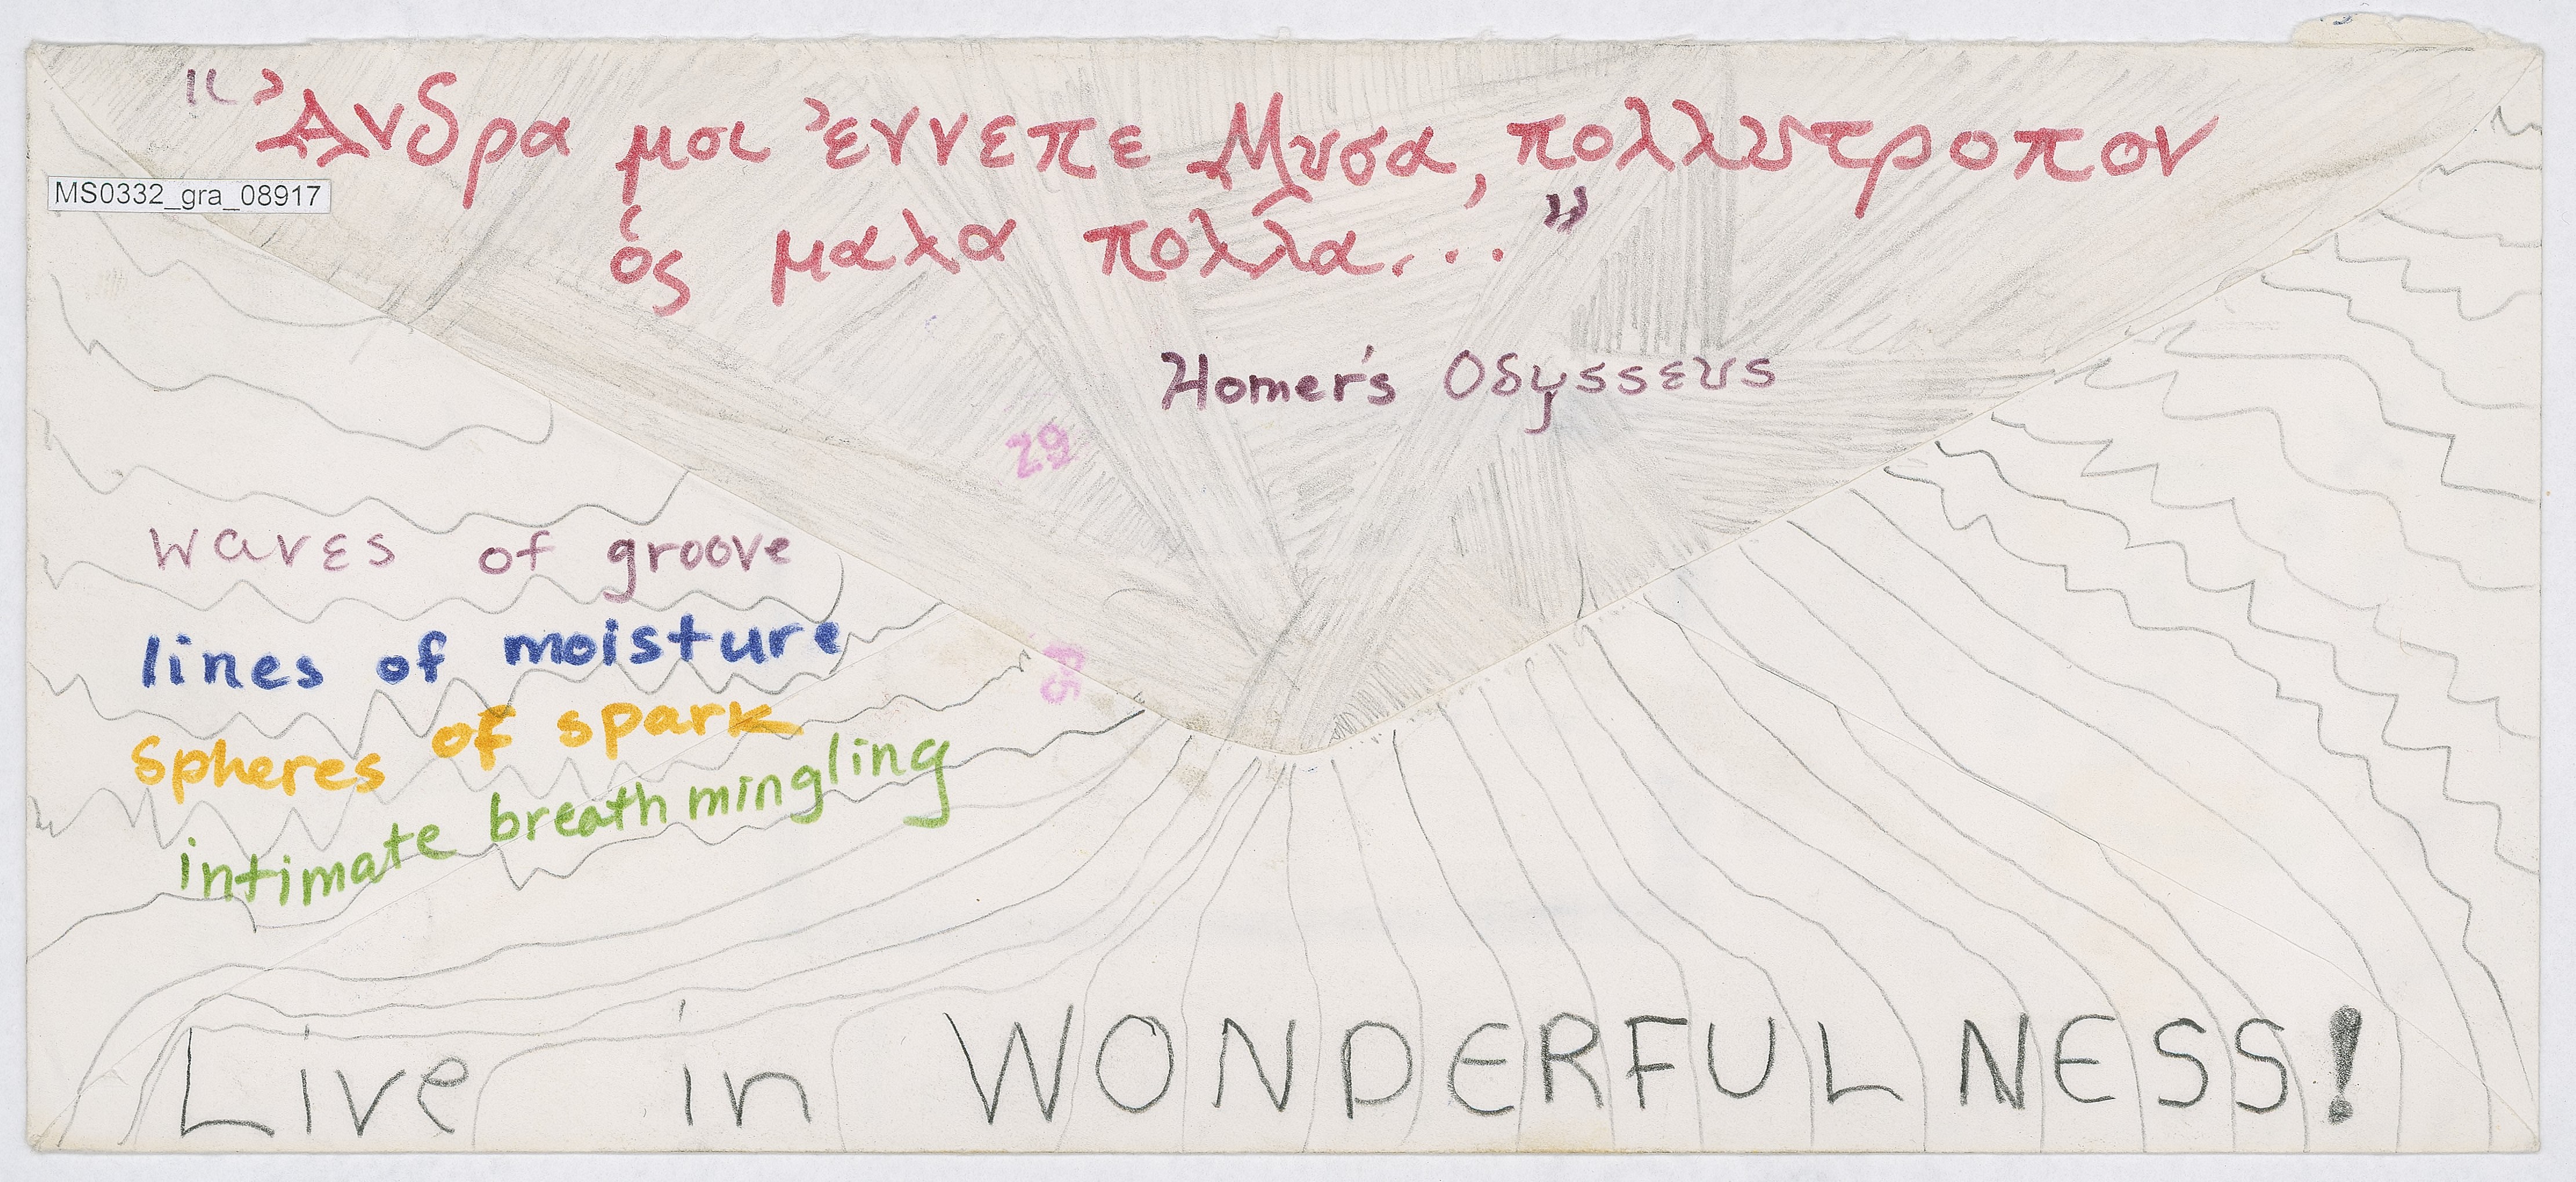 "Ἀνδρα μοι ἐννεπε Μυσα, πολλυτροπον
ὁς μαλα πολλα..."
MS0332_gra_08917
Homer's Oδyssευs
29
waves of groove
lines of moisture
Spheres of spark
intimate breath mingling
Live in WONDERFULNESS!